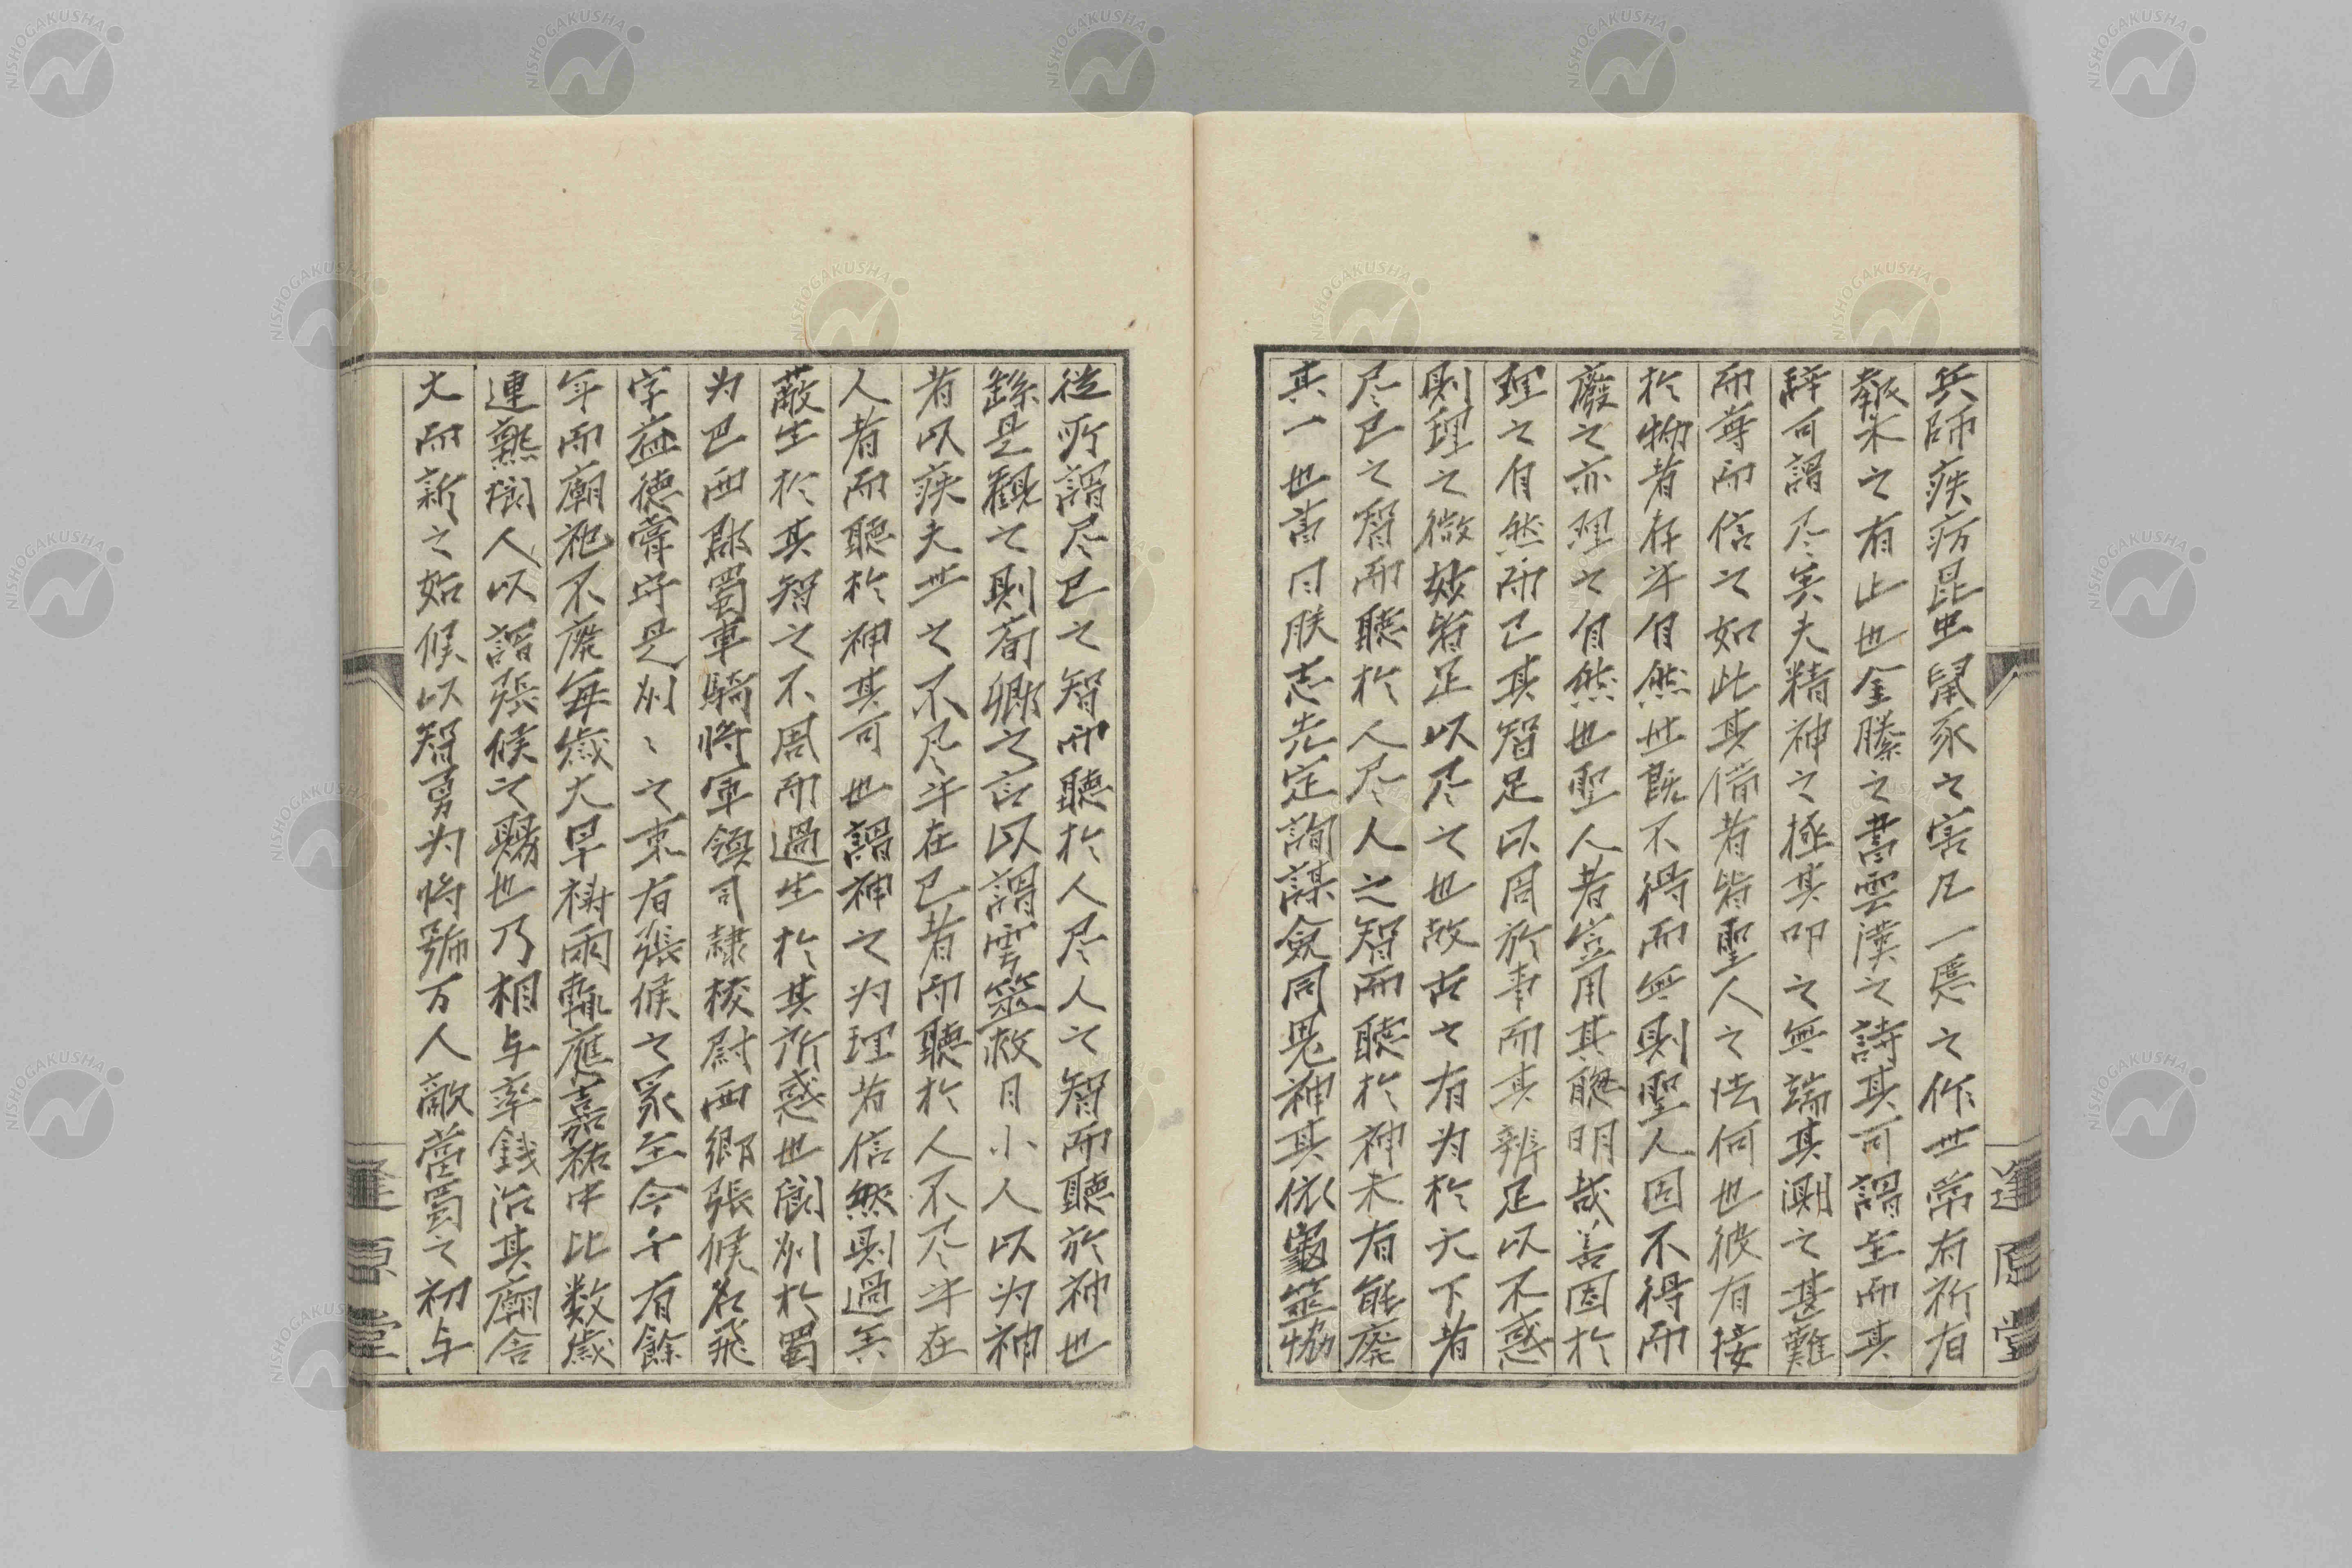 兵師疾疠昆虫鼠豕之害凡一慝之作世常有祈有
報末之有止也金縢之書雲漢之詩其可謂至而其
辞可謂尽矣夫精神之極其叩之無端其測之甚難
而尊而信之如此其備者皆聖人之法何也彼有接
於物者存乎自然世既不得而無則聖人固不得而
廢之亦理之自然也聖人者豈用其聰明哉善因於
理之自然而已其智足以周於事而其辨足以不惑
則理之微妙皆足以尽之也故古之有为於天下者
尽已之智而聽於人尽人之智而聽於神未有能廢
其一也書曰朕志先定詢謀僉同鬼神其依龜筮恊
從所謂尽已之智而聽於人尽人之智而聽於神也
繇是觀之則荀卿之言以謂雩筮救日小人以为神
者以疾夫世之不尽乎在已者而聽於人不尽乎在
人者而聽於神其可也謂神之为理者信然則過矣
蔽生於其智之不周而過生於其所惑也閬州於蜀
为巴西郡蜀車騎将軍領司隷校尉西鄉張侯名飛
字益徳嘗守是州〻之東有張侯之冢至今千有餘
年而廟祀不廢每歳大旱禱雨輒應嘉祐中比数歳
連熟閬人以謂張侯之賜也乃相与率銭治其廟舎
大而新之始侯以智勇为将號万人敵當蜀之初与
逢原堂
逢原堂
NISHOGAKUSHA